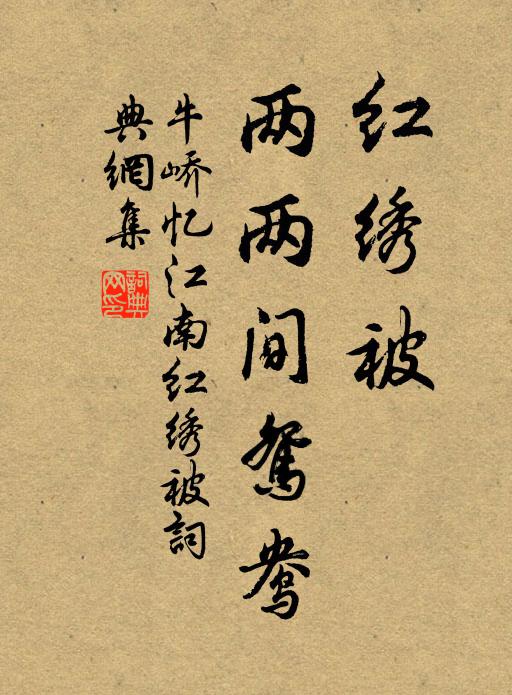 红绣被
两两间鸳鸯
牛峤忆江南红绣被词
典網集
詞典网印